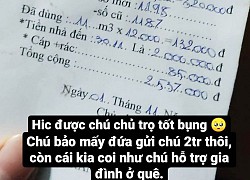 520000đ
-số cũ : 1187
Đã dùng : 11 m3 x 12.000 = 132000đ
*Tiền nhà đến : 30.11. Là : 2.000.000đ
* Cáp +rác:
Tổng cộng : 2.537.000đ
Ngày 01 Tháng 11
Hic được chú chủ trọ tốt bụng 🥺
Chú bảo mấy đứa gửi chú 2tr thôi,
còn cái kia coi như chú hỗ trợ gia
đình ở quê.